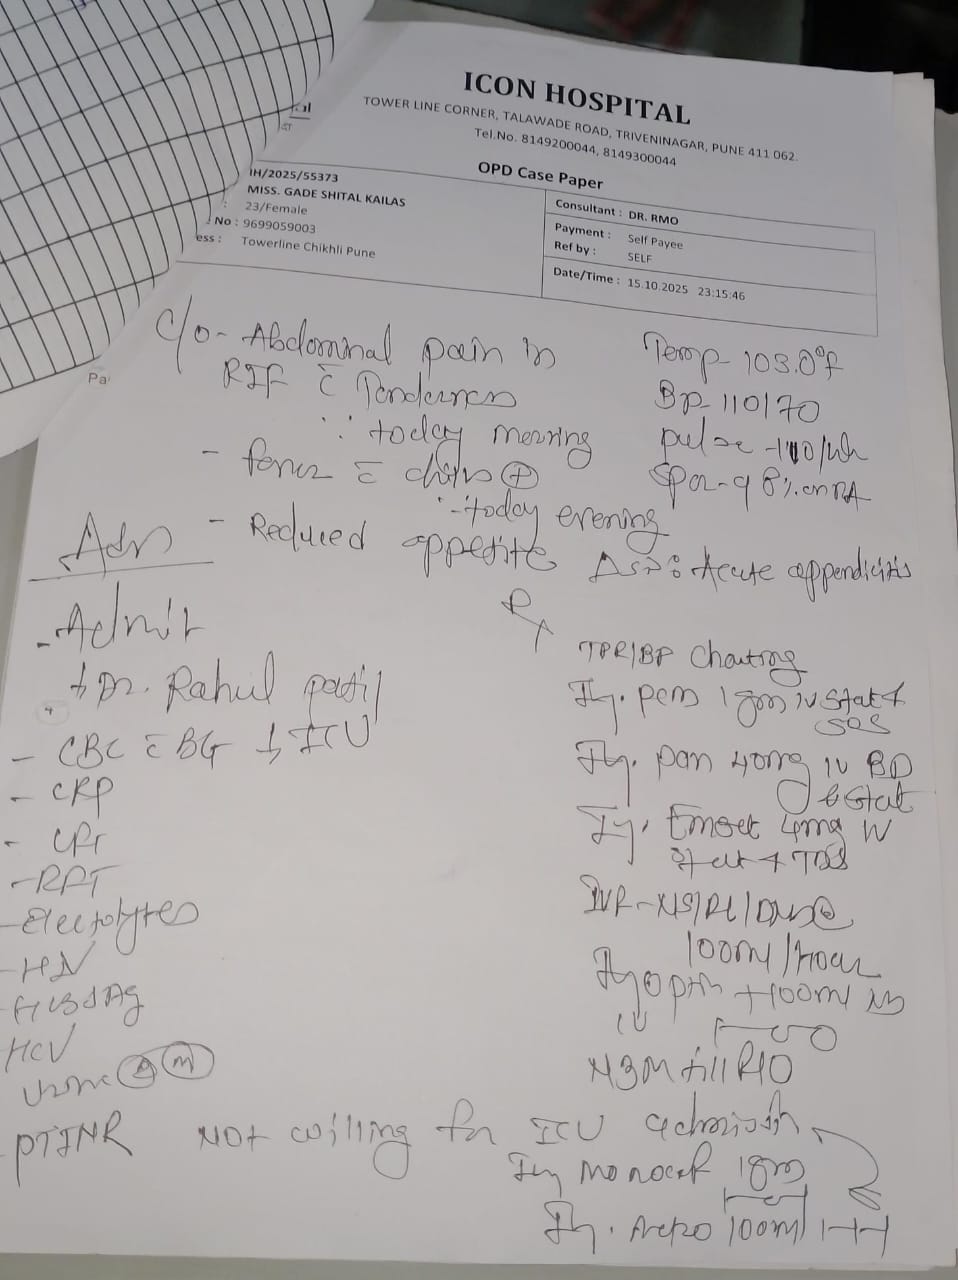 ICON HOSPITAL
TOWER LINE CORNER, TALAWADE ROAD, TRIVENINAGAR, PUNE 411 062.
Tel.No. 8149200044, 8149300044
OPD Case Paper
IH/2025/55373
MISS. GADE SHITAL KAILAS
: 23/Female
No : 9699059003
ess : Towerline Chikhli Pune
Consultant : DR. RMO
Payment : Self Payee
Ref by : SELF
Date/Time : 15.10.2025 23:15:46
Pa
C/o - Abdominal pain in
RIF c̄ Tenderness
∵ today morning
- fever c̄ chills ⊕
∵ today evening
- Reduced appetite
Temp - 103.0°F
Bp - 110/70
pulse -
SPO2 - 98% on RA
Acute appendicitis
Adv
- Admit
Dr. Rahul patil
- CBC c̄ BG ICU
- CRP
- LFT
- RFT
- Electolytes
- HIV
- HBSAg
HCV
Urine (R) (M)
PTINR
Rx
TPR/BP Charting
Inj. pcm 1gm IV Stat & SOS
Inj. pan 40mg IV BD
& Stat
Inj. Emset 4mg IV
Stat & TDS
IVF - NS/RL/DNS @
100ml/Hour
Inj optin + 100ml NS
IV
NBM till R/O
NOT willing for ICU admission
Inj Monocef 1gm
Inj. 100ml 1-1-1